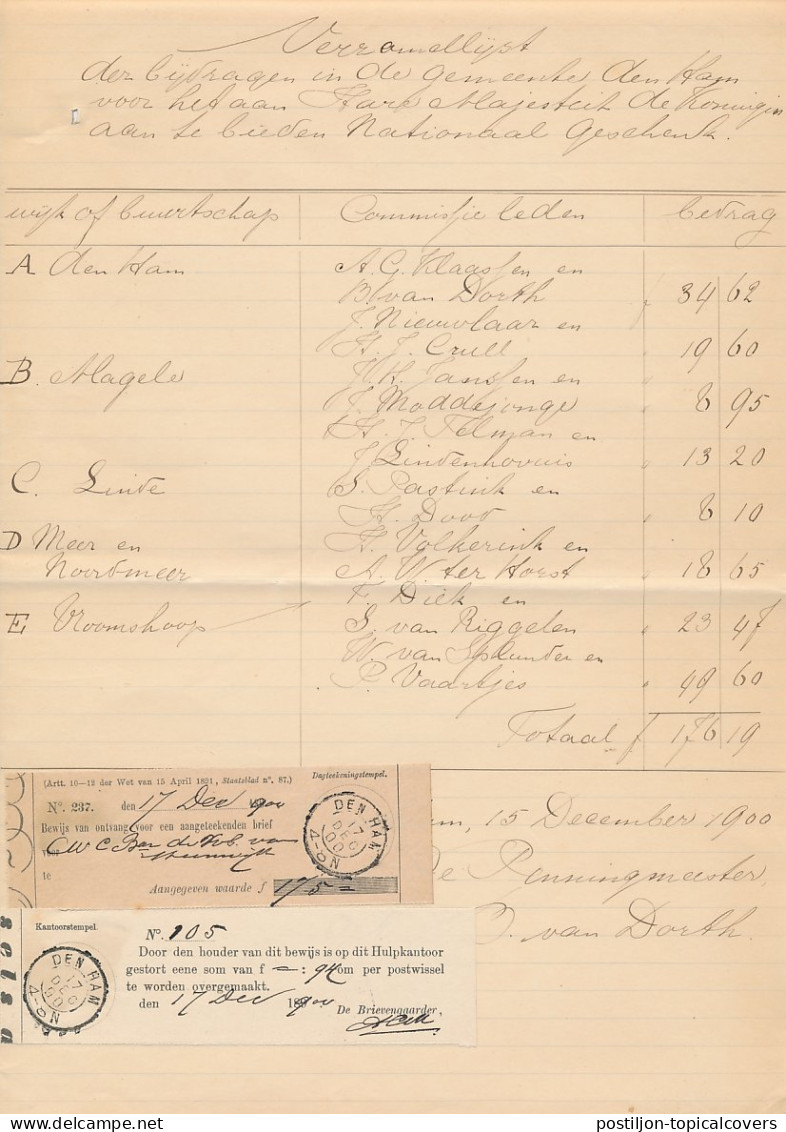 Verzamellijst
der bijdragen in de gemeente den Ham
voor het aan Hare Majesteit de Koningin
aan te bieden Nationaal Geschenk.
wijk of buurtschap Commissie leden bedrag
A den Ham A. G. Klaassen en
B. van Dorth f 34 62
J. Nieuwlaar en
H. J. Crull " 19 60
B. Magele J. H. Janssen en
J. Moddejonge " 8 95
H. J. Telman en
J. Lindenhovius " 13 20
C. Linde S. Pastink en
H. Dood " 8 10
D Meer en H. Volkerink en
Noordmeer A. W. ter Horst " 18 65
F. Diek en
E Vroomshoop S. van Riggelen " 23 47
W. van Splunder en
P. Vaartjes " 49 60
Totaal f 176 19
(Artt. 10—12 der Wet van 15 April 1891, Staatsblad n°. 87.) Dagteekeningstempel.
N°. 237. den 17 Dec 1900
Bewijs van ontvang voor een aangeteekenden brief
voor C W C Bar de Vos van
Steenwijk
te
Aangegeven waarde f 175 =
DEN HAM
17 DEC 00
4-8N
15 December 1900
De Penningmeester,
B. van Dorth.
sels
Kantoorstempel. N°. 105
Door den houder van dit bewijs is op dit Hulpkantoor
gestort eene som van f = : 94 om per postwissel
te worden overgemaakt.
den 17 Dec 1900
De Brievengaarder,
DEN HAM
17 DEC 00
4-8N
postiljon-topicalcovers